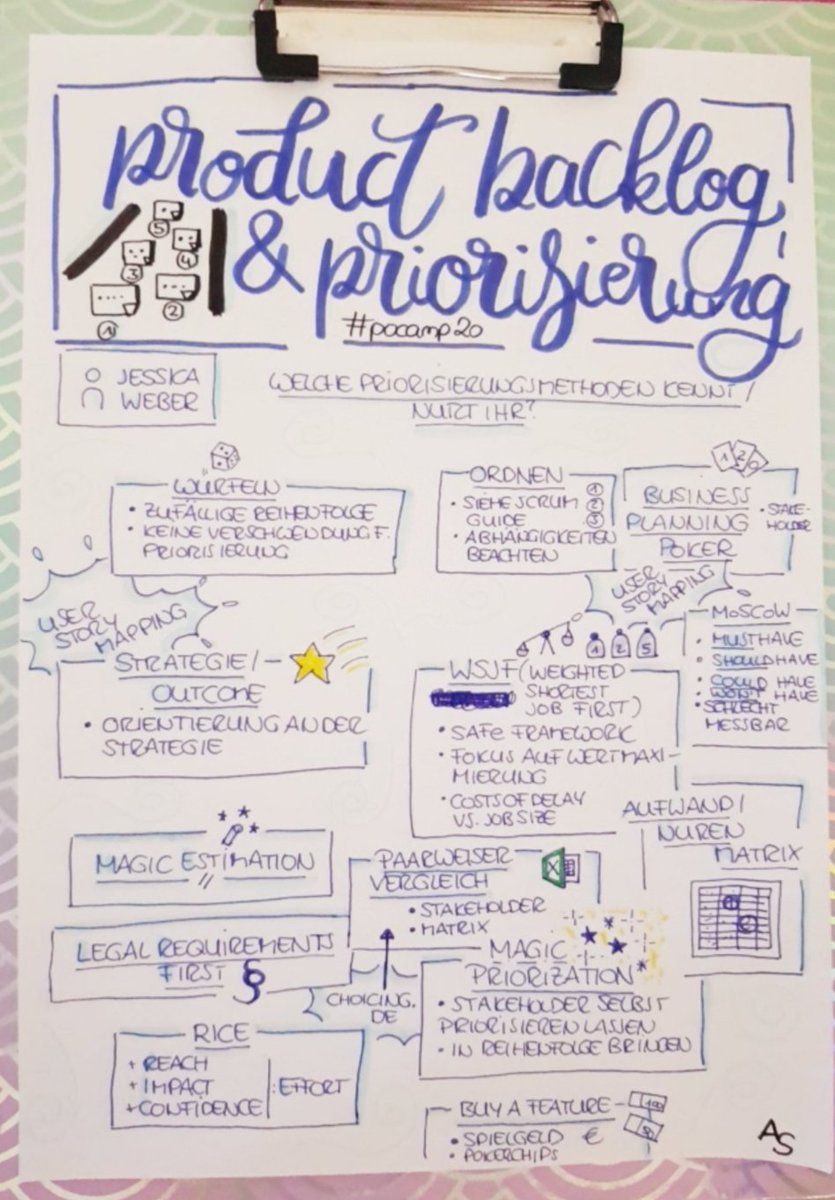 product backlog
& priorisierung
#pocamp20
5
4
3
2
1
JESSICA
WEBER
WELCHE PRIORISIERUNGSMETHODEN KENNT /
NUTZT IHR?
WÜRFELN
• ZUFÄLLIGE REIHENFOLGE
• KEINE VERSCHWENDUNG F.
PRIORISIERUNG
ORDNEN
• SIEHE SCRUM
GUIDE
• ABHÄNGIGKEITEN
BEACHTEN
1
2
3
BUSINESS
PLANNING
POKER
• STAKE-
HOLDER
1 2
USER
STORY
MAPPING
STRATEGIE/
OUTCOME
• ORIENTIERUNG AN DER
STRATEGIE
USER
STORY
MAPPING
1 2 5
WSJF (WEIGHTED
SHORTEST
JOB FIRST)
• SAFe FRAMEWORK
• FOKUS AUF WERTMAXI-
MIERUNG
• COSTS OF DELAY
VS. JOBSIZE
MoSCoW
• MUST HAVE
• SHOULD HAVE
• COULD HAVE
• WON'T HAVE
• SCHLECHT
MESSBAR
MAGIC ESTIMATION
AUFWAND/
NUTZEN
MATRIX
PAARWEISER
VERGLEICH
X
• STAKEHOLDER
• MATRIX
LEGAL REQUIREMENTS
FIRST §
CHOICING.
DE
MAGIC
PRIORIZATION
• STAKEHOLDER SELBST
PRIORISIEREN LASSEN
• IN REIHENFOLGE BRINGEN
RICE
+ REACH
+ IMPACT
+ CONFIDENCE
: EFFORT
BUY A FEATURE
100
50
• SPIELGELD €
• POKERCHIPS
AS